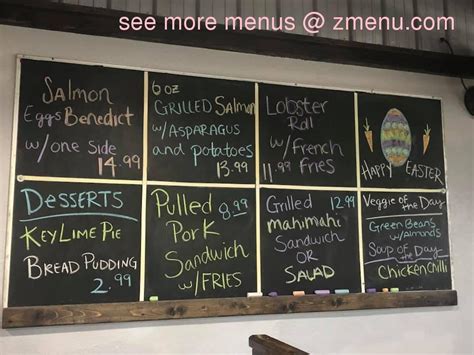 see more menus @ zmenu.com
Salmon
Eggs Benedict
w/one Side
14.99
6 oz
GRILLED Salmon
w/ASPARAGUS
and potatoes
13.99
Lobster
Roll
w/French
11.99 Fries
HAPPY EASTER
DESSERTS
KEY LIME PIE
BREAD PUDDING
2.99
Pulled 8.99
Pork
Sandwich
w/FRIES
Grilled 12.99
mahimahi
Sandwich
OR
SALAD
Veggie of the Day
Green Beans
w/Almonds
Soup of the Day
Chicken Chili